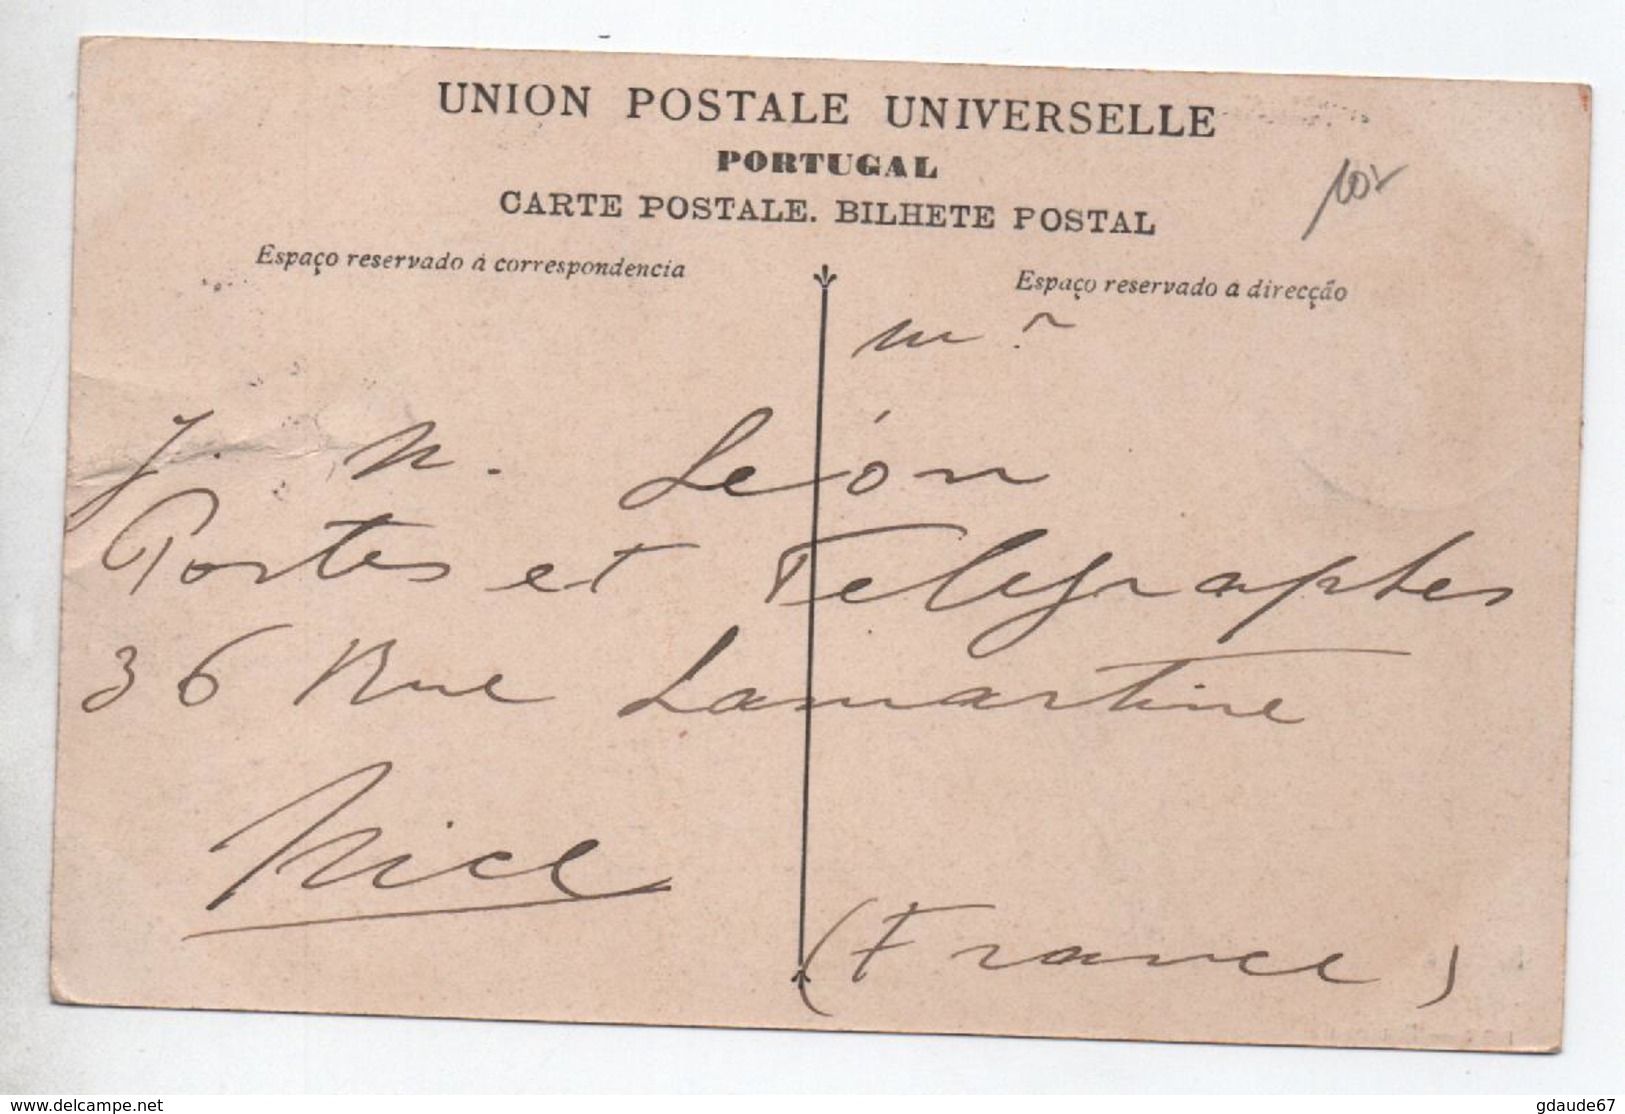 UNION POSTALE UNIVERSELLE
PORTUGAL
CARTE POSTALE. BILHETE POSTAL
Espaço reservado á correspondencia
Espaço reservado a direcção
Mr
J. N. León
Postes et Telegraphes
36 Rue Lamartine
Nice
(France)
www.delcampe.net
gdaude67